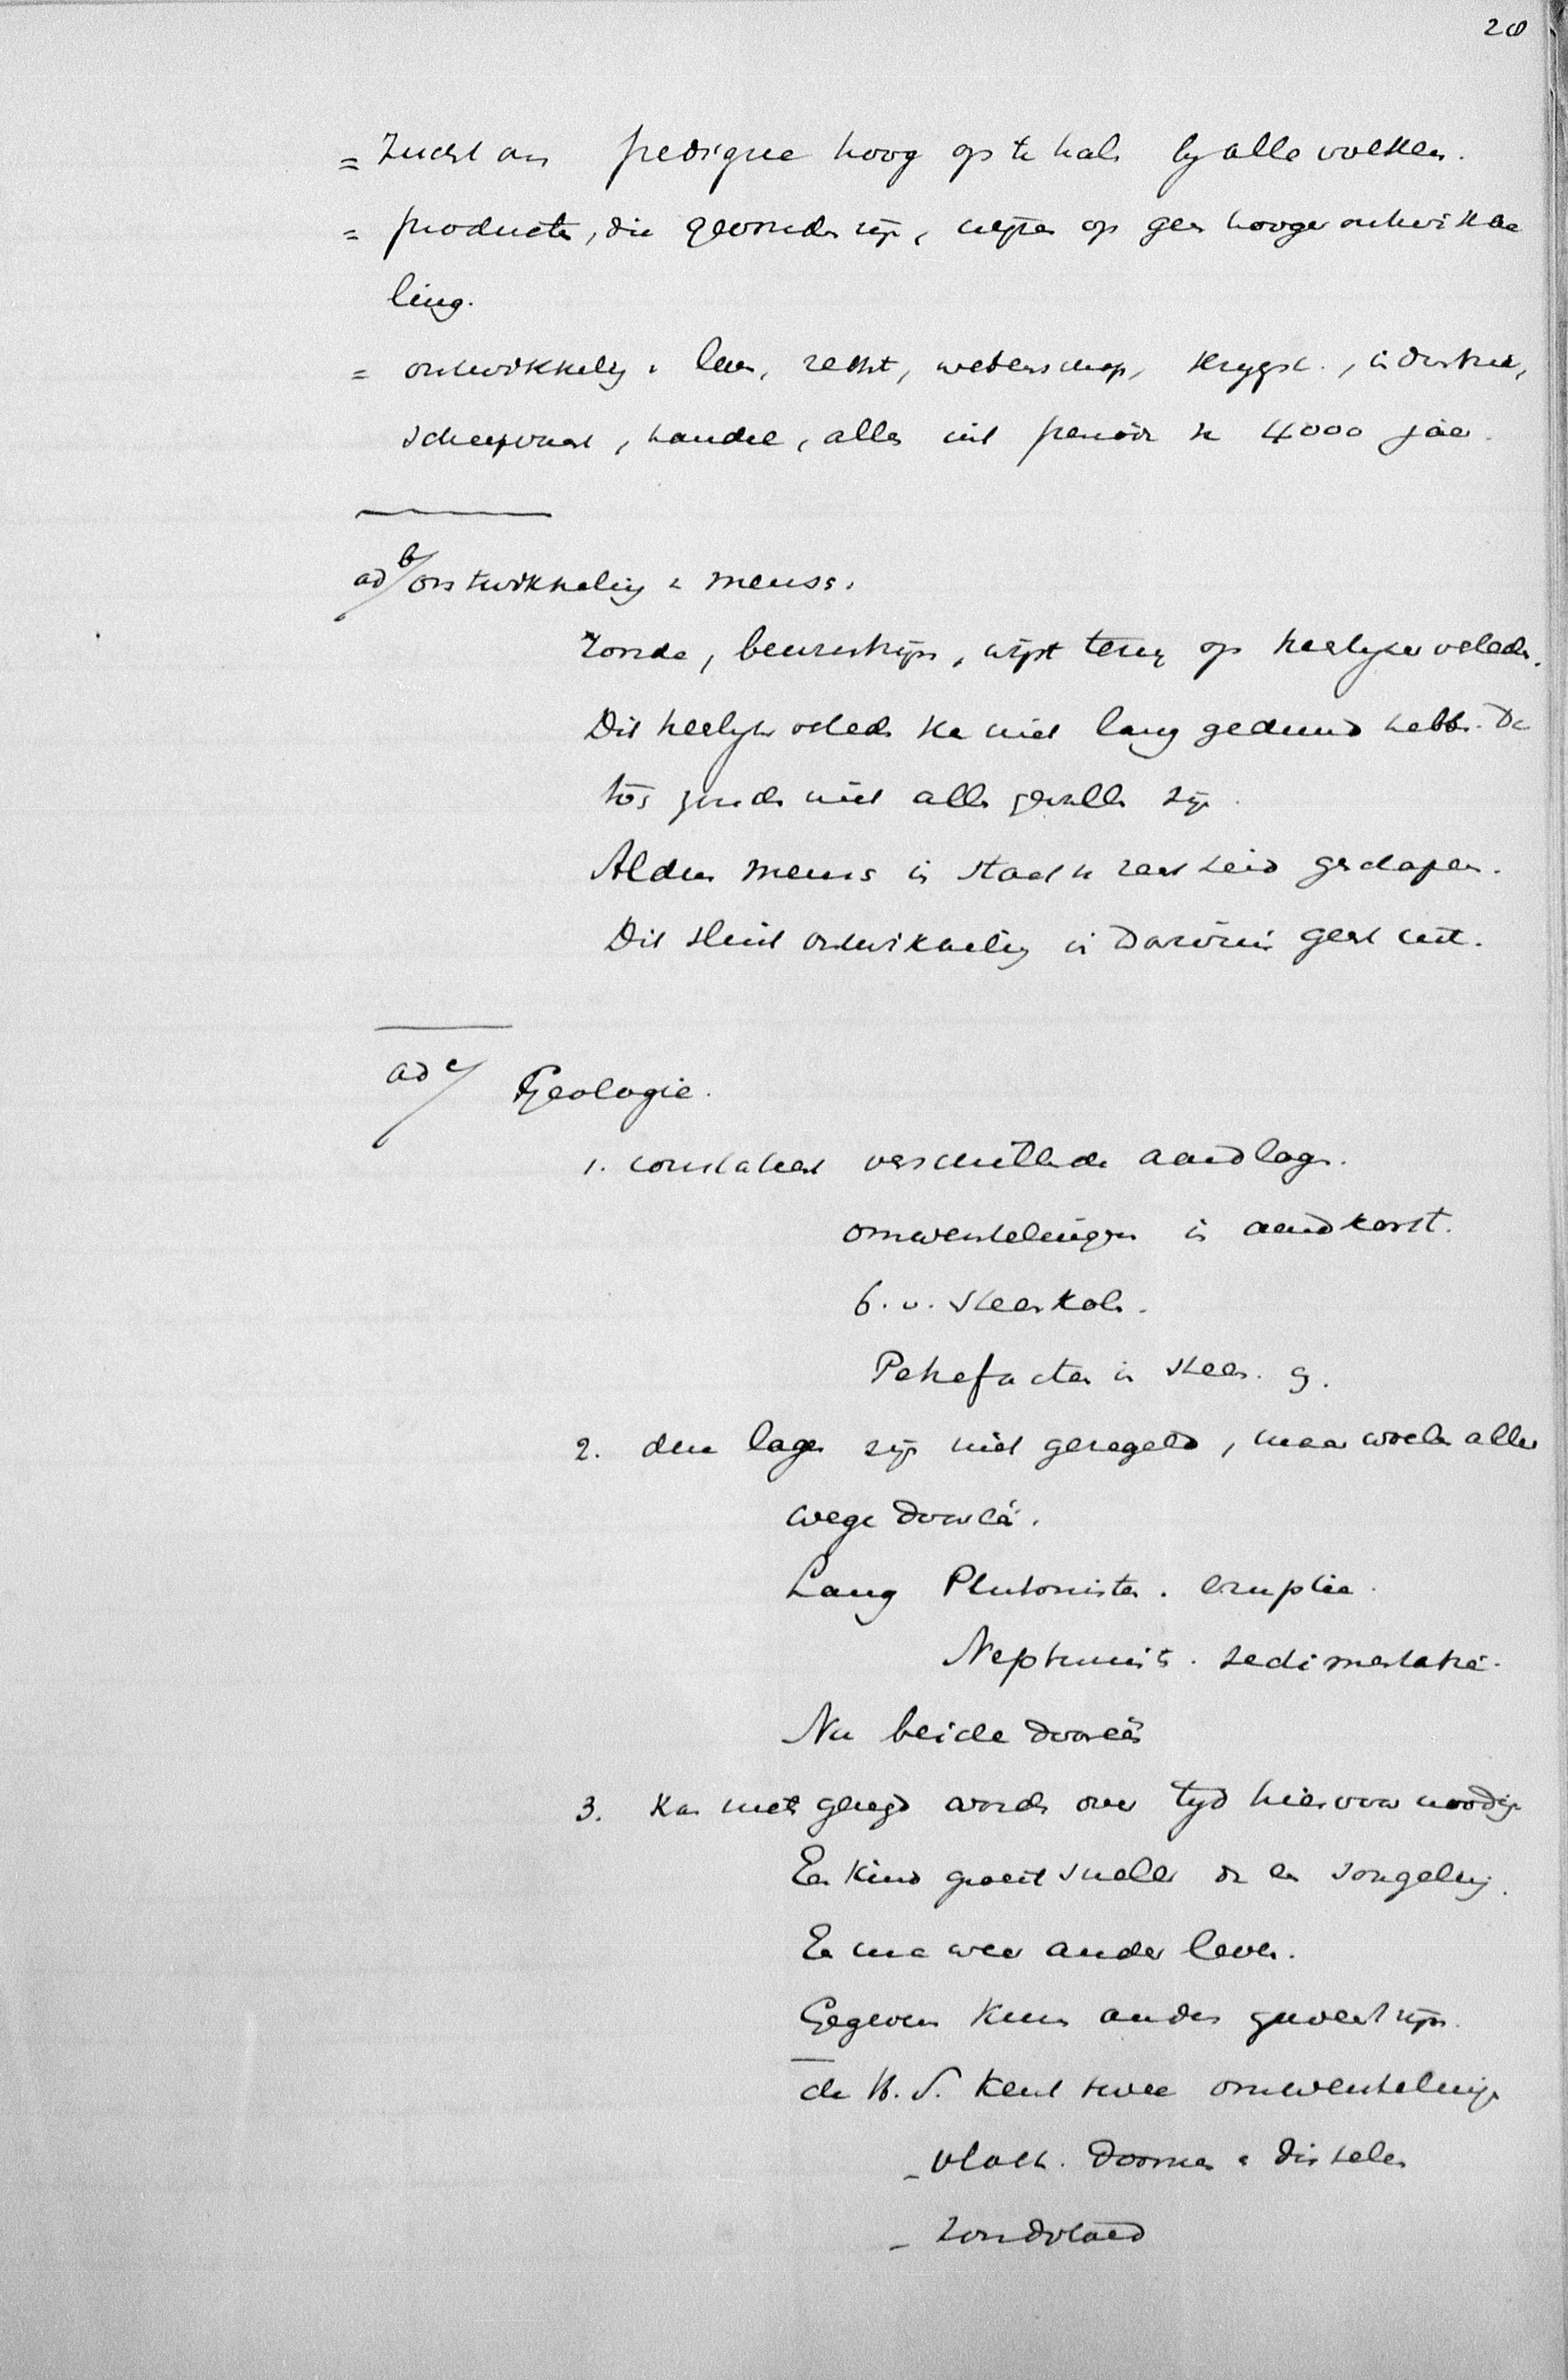 28
= Zucht om pedigree hoog op te hale by alle volken.
= producten, die gevonden zijn, wijzen op geen hooger ontwikke
ling.
= ontwikkeling v. leven, recht, wetenschap, krygsk., industrie,
scheepvaart, handel, alles uit periode v 4000 jaar.
ad b/ ontwikkeling v mensch.
Zonde, bewustzijn, wijst terug op heerlyker verleden.
Dit heerlyk verleden kan niet lang geduurd hebben. De
niet alle gevallen zijn.
Alden mensch in staat v rechtheid geschapen.
Dit sluit ontwikkeling in Darwin. geest uit.
ad c/ Geologie.
1. constateert verschillende aardlagen.
omwentelingen in aardkorst.
b. v. steenkolen.
Petrefacten in steen. g.
2. deze lagen zijn niet geregeld, maar woelen aller
wege dooreen.
Lang Plutonisten. eruptie.
Neptunist. sedimentatie.
Nu beide dooreen
3. Kan niets gezegd worden over tyd hiervoor noodig
Een kind groeit sneller dan een jongeling.
En een man weer anders leven.
Gegevens kunnen anders geweest zijn.
de H. S. kent twee omwentelingen
- vloek. doornen en distelen
- zondvloed